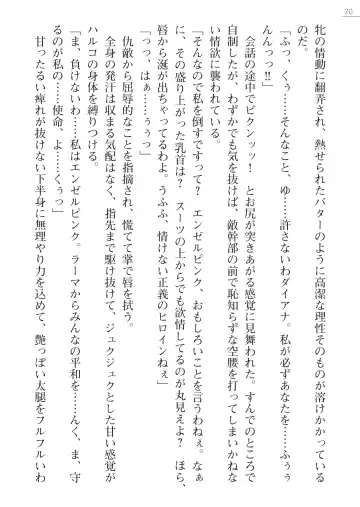 20
牝の情動に翻弄され、熱せられたバターのように高潔な理性そのものが溶けかかった
のだ。
「ふっ、くぅ……そんなこと、ゆ……許さないわダイアナ。私が必ずあなたを……ふぅ
んんっっ!!」
会話の途中でビクンッッ! とお尻が突きあがる感覚に見舞われた。すんでのところで
自制したが、わずかでも気を抜けば、敵幹部の前で恥知らずな空腰を打ってしまいかねな
い情欲に襲われている。
「そんなので私を倒すですって? エンゼルピンク、おもしろいことを言うわねぇ。なぁ
に、その盛り上がった乳首は? スーツの上からでも欲情してるのが丸見えよ? ほら、
唇から涎が出ちゃってるわよ。うふふ、情けない正義のヒロインねぇ」
「っっ、はぁ……ぅぅっ」
仇敵から屈辱的なことを指摘され、慌てて掌で唇を拭う。
全身の発汗は収まる気配はなく、指先まで駆け抜けて、ジュクジュクとした甘い感覚が
ハルコの身体を縛りつける。
「ま、負けないわ……私はエンゼルピンク。ラーマからみんなの平和を……んく、ま、守
るのが私の……使命、よ……くぅっ」
甘ったるい痺れが抜けない下半身に無理やり力を込めて、艶っぽい太腿をフルフルいわ